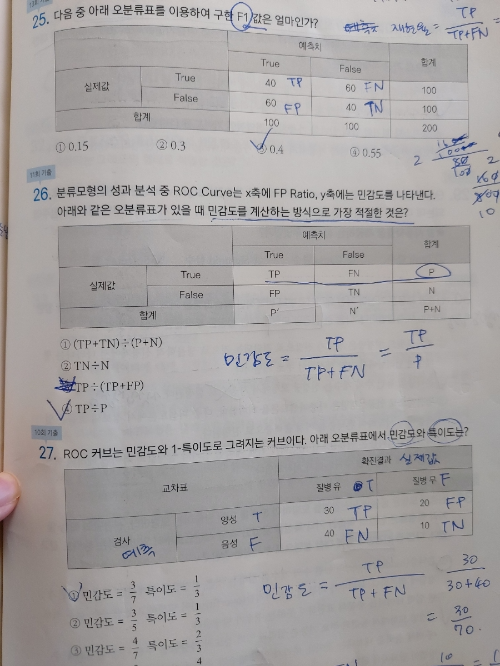 25. 다음 중 아래 오분류표를 이용하여 구한 F1 값은 얼마인가?
재현율 = TP / TP+FN =
예측치 합계
True False
실제값 True 40 TP 60 FN 100
False 60 FP 40 TN 100
합계 100 100 200
① 0.15 ② 0.3 ③ 0.4 ④ 0.55
11회 기출
26. 분류모형의 성과 분석 중 ROC Curve는 x축에 FP Ratio, y축에는 민감도를 나타낸다.
아래와 같은 오분류표가 있을 때 민감도를 계산하는 방식으로 가장 적절한 것은?
예측치 합계
True False
실제값 True TP FN P
False FP TN N
합계 P' N' P+N
① (TP+TN)÷(P+N)
② TN÷N
③ TP÷(TP+FP)
④ TP÷P
민감도 = TP / TP+FN = TP / P
10회 기출
27. ROC 커브는 민감도와 1-특이도로 그려지는 커브이다. 아래 오분류표에서 민감도와 특이도는?
교차표 확진결과 실제값
질병 유 T 질병 무 F
검사 예측 양성 T 30 TP 20 FP
음성 F 40 FN 10 TN
① 민감도 = 3/7 특이도 = 1/3
② 민감도 = 3/5 특이도 = 1/3
③ 민감도 = 4/7 특이도 = 2/3
민감도 = TP / TP+FN 30 / 30+40
= 30 / 70.